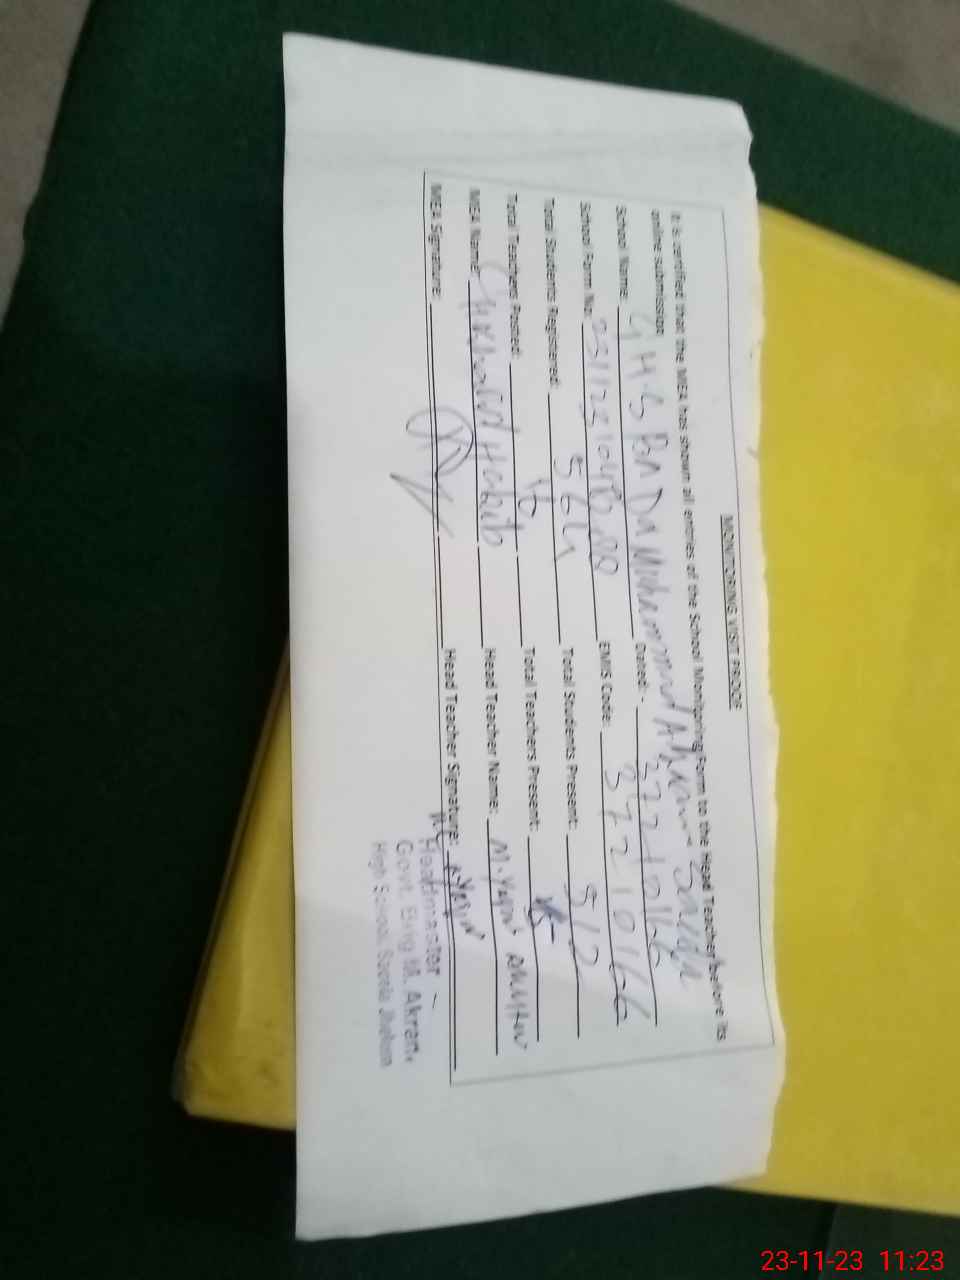 MONITORING VISIT PROOF
It is certified that the MEA has shown all entries of the School Monitoring Form to the Head Teacher before its
online submission
School Name: GHS Muhammad Akram Dated:
School Form No. EMIS Code: 37210166
Total Students Registered: 564 Total Students Present: 512
Total Teachers Posted: 16 Total Teachers Present: 15
MEA Name: Habib Head Teacher Name: M. Yasin
MEA Signature: Head Teacher Signature:
Headmaster
Govt. M. Akram
High School Jhelum
23-11-23 11:23